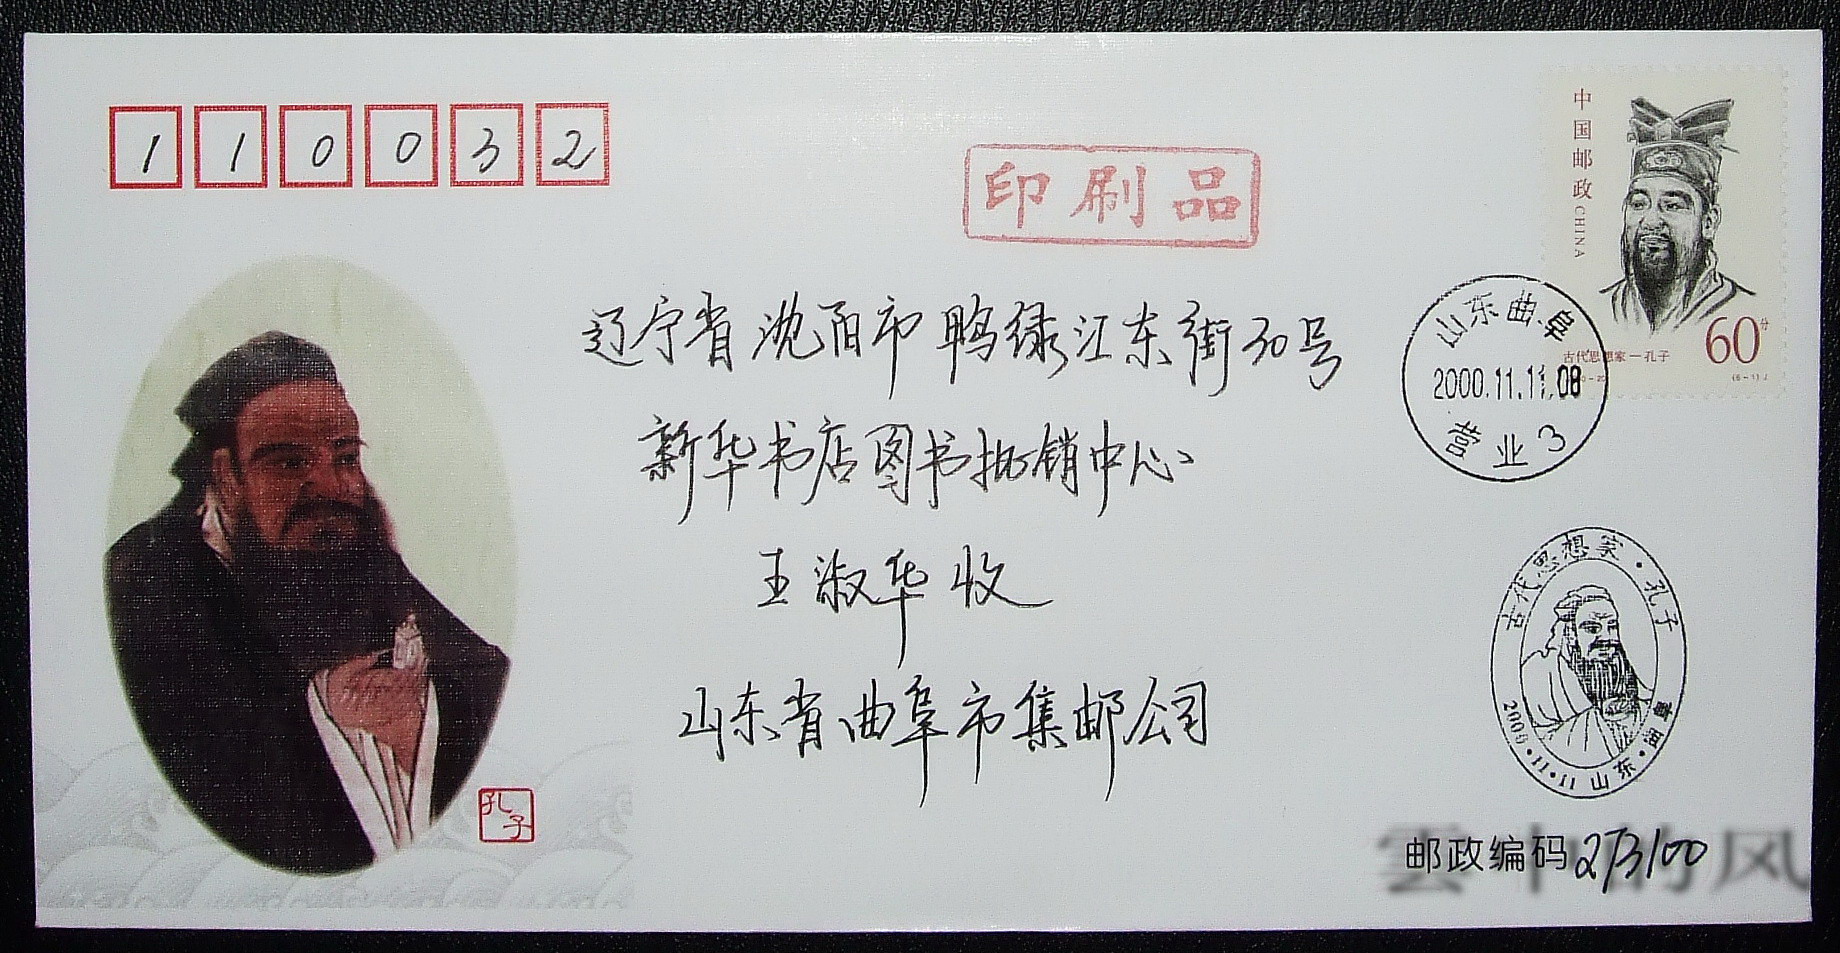 110032
印刷品
中国邮政 CHINA
60分
古代思想家-孔子
(6-1)J
山东曲阜
2000.11.11.08
营业3
辽宁省沈阳市鸭绿江东街30号
新华书店图书批销中心
王淑华收
山东省曲阜市集邮公司
孔子
古代思想家·孔子
2000·11·11 山东·曲阜
邮政编码 273100
雲中的风